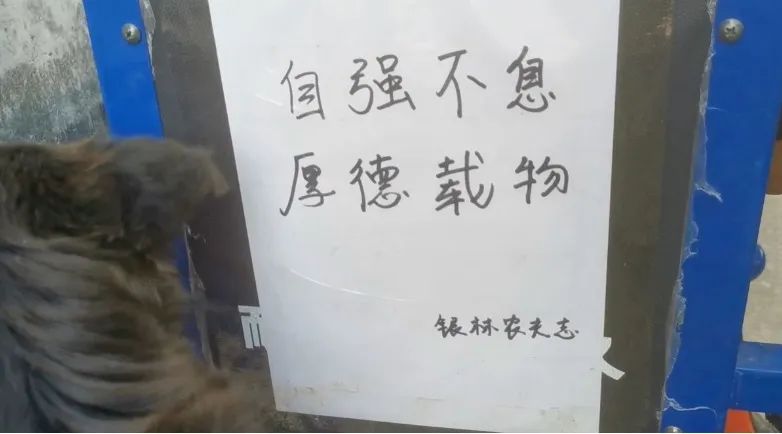 自强不息
厚德载物
银林农夫志